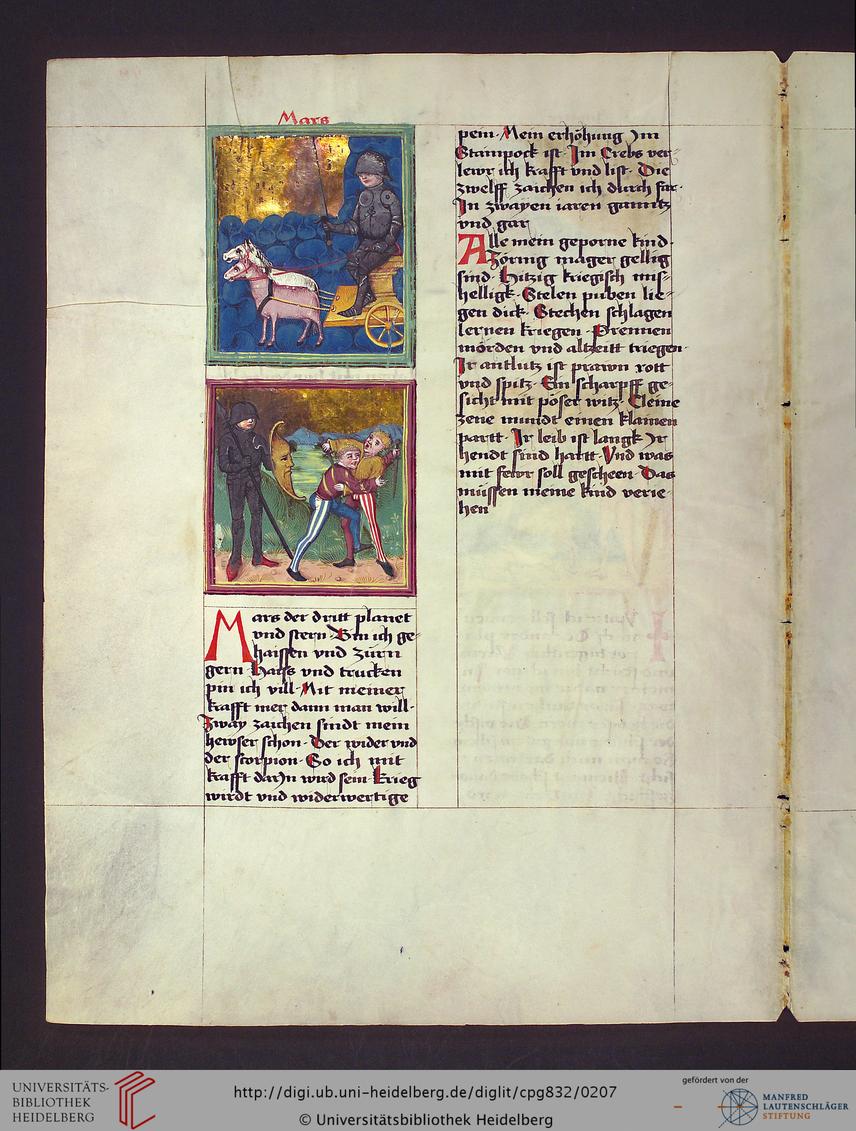 Mars
Mars der dritt planet
vnd stern Bin ich ge-
haissen vnd zürn
gern Haiss vnd trucken
pin ich vill · Mit meiner
krafft mer dann man will ·
Zway zaichen sindt mein
hewser schon · Der wider vnd
der scorpion · So ich mit
krafft daryn wird sein · Krieg
wirdt vnd widerwertige
pein · Mein erhöhung ym
Stainpock ist · Im Crebs ver-
lewr ich krafft vnd list · Die
zwelff zaichen ich durch far ·
In zwayen iaren ganntz
vnd gar
Alle mein geporne kind ·
Zöring mager gellig
sind · Hitzig kriegisch mis-
helligk · Stelen puben lie-
gen dick · Stechen schlagen
lernen kriegen · Prennen
mörden vnd altzeitt triegen ·
Ir antlutz ist prawn rott
vnd spitz · Ein scharpff ge-
sicht mit pöser witz · Cleine
zene mundt einen klainen
partt · Ir leib ist langk Ir
hendt sind hartt · Vnd was
mit fewr soll gescheen · Das
müssen meine kind verie-
hen
UNIVERSITÄTS-
BIBLIOTHEK
HEIDELBERG
http://digi.ub.uni-heidelberg.de/diglit/cpg832/0207
© Universitätsbibliothek Heidelberg
gefördert von der
MANFRED
LAUTENSCHLÄGER
STIFTUNG